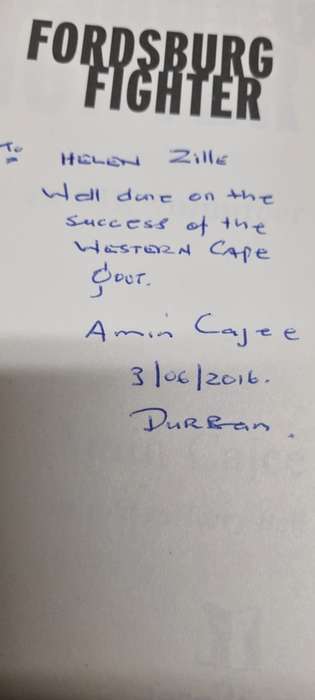 FORDSBURG
FIGHTER
To
HELEN Zille
Well done on the
success of the
WESTERN CAPE
GOUT.
Amin Cajee
3/06/2016.
DURBAN.